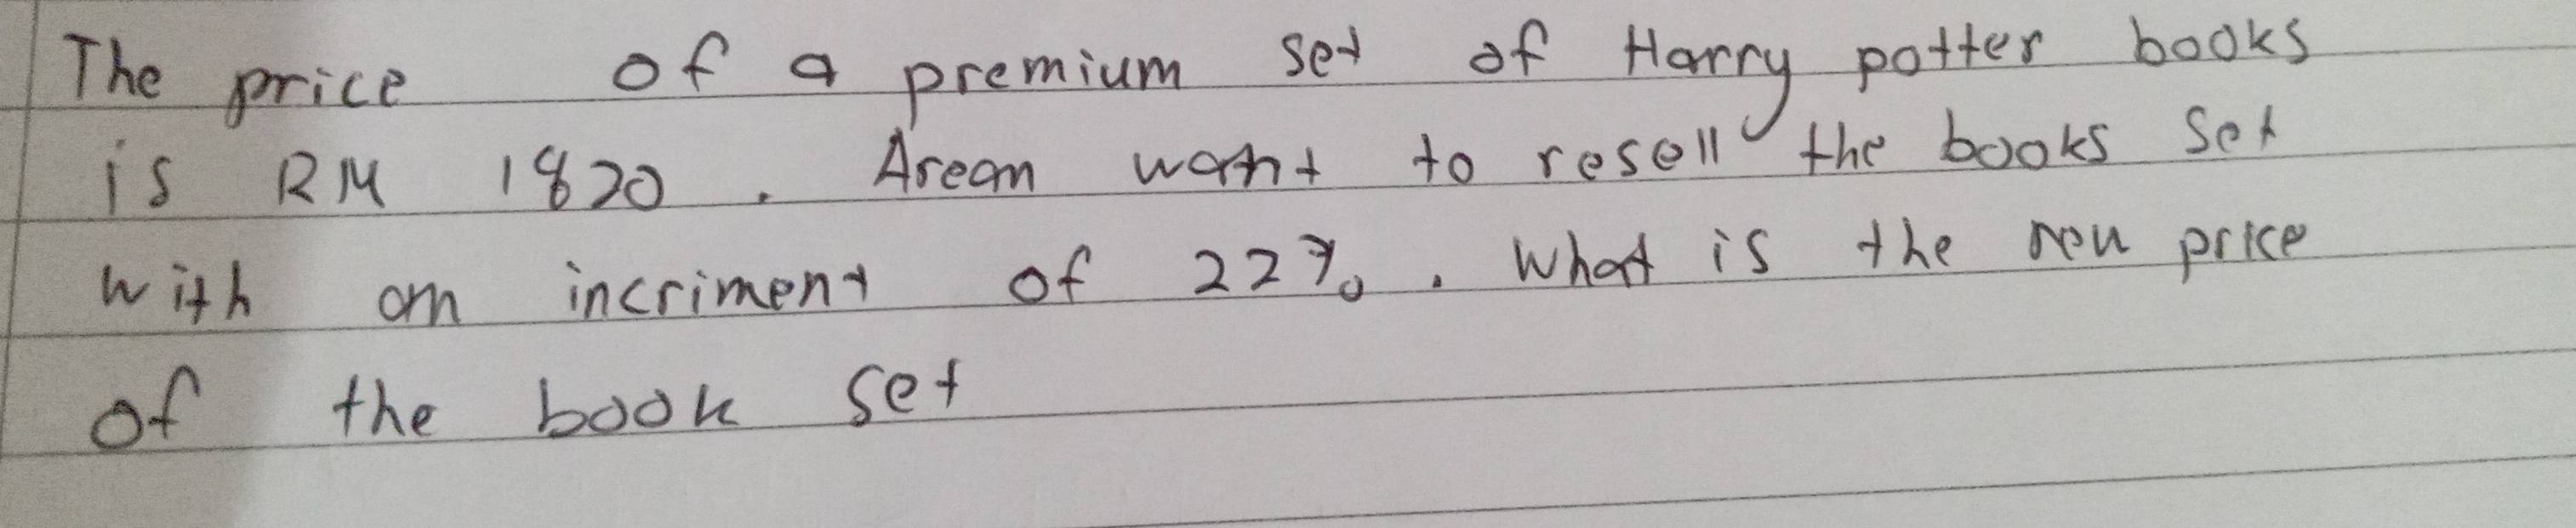 The price of a premium set of Harry potter books
is RM 1820. Arean want to resell the books set
with an incriment of 22%. What is the new price
of the book set